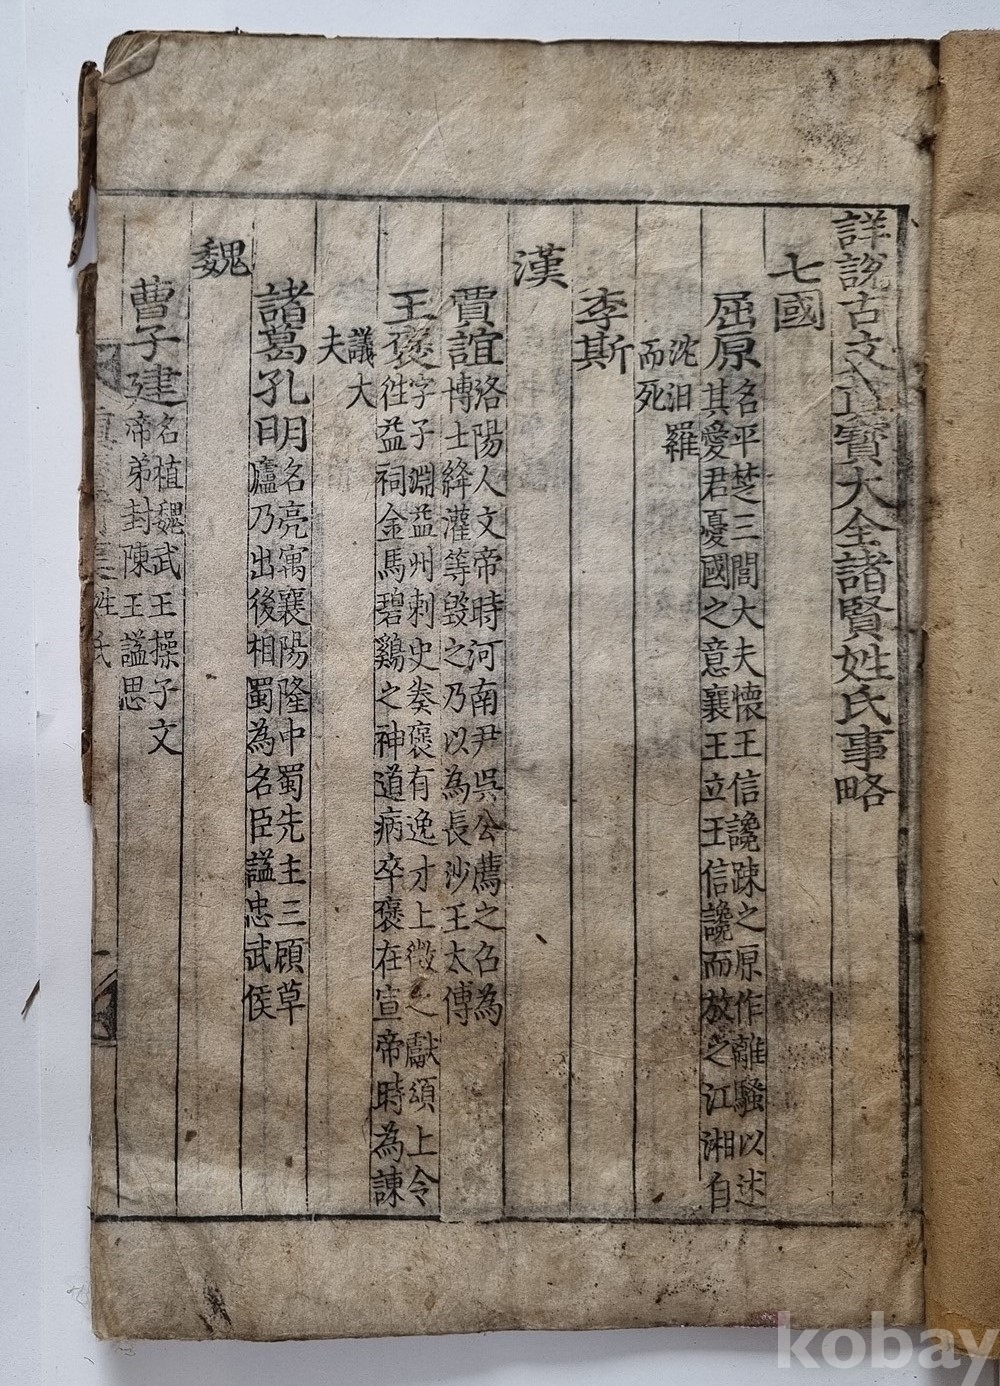 詳說古文眞寶大全諸賢姓氏事略
七國
屈原
名平楚三閭大夫懷王信讒疎之原作離騷以述
其愛君憂國之意襄王立王信讒而放之江湘自
沈汨羅
而死
李斯
漢
賈誼
洛陽人文帝時河南尹吳公薦之召為
博士絳灌等毀之乃以為長沙王太傅
王褒
字子淵益州刺史奏褒有逸才上徵之獻頌上令
徃益祠金馬碧鷄之神道病卒褒在宣帝時為諫
議大
夫
諸葛孔明
名亮寓襄陽隆中蜀先主三顧草
廬乃出後相蜀為名臣謚忠武侯
魏
曹子建
名植魏武王操子文
帝弟封陳王謚思
姓氏
kobay